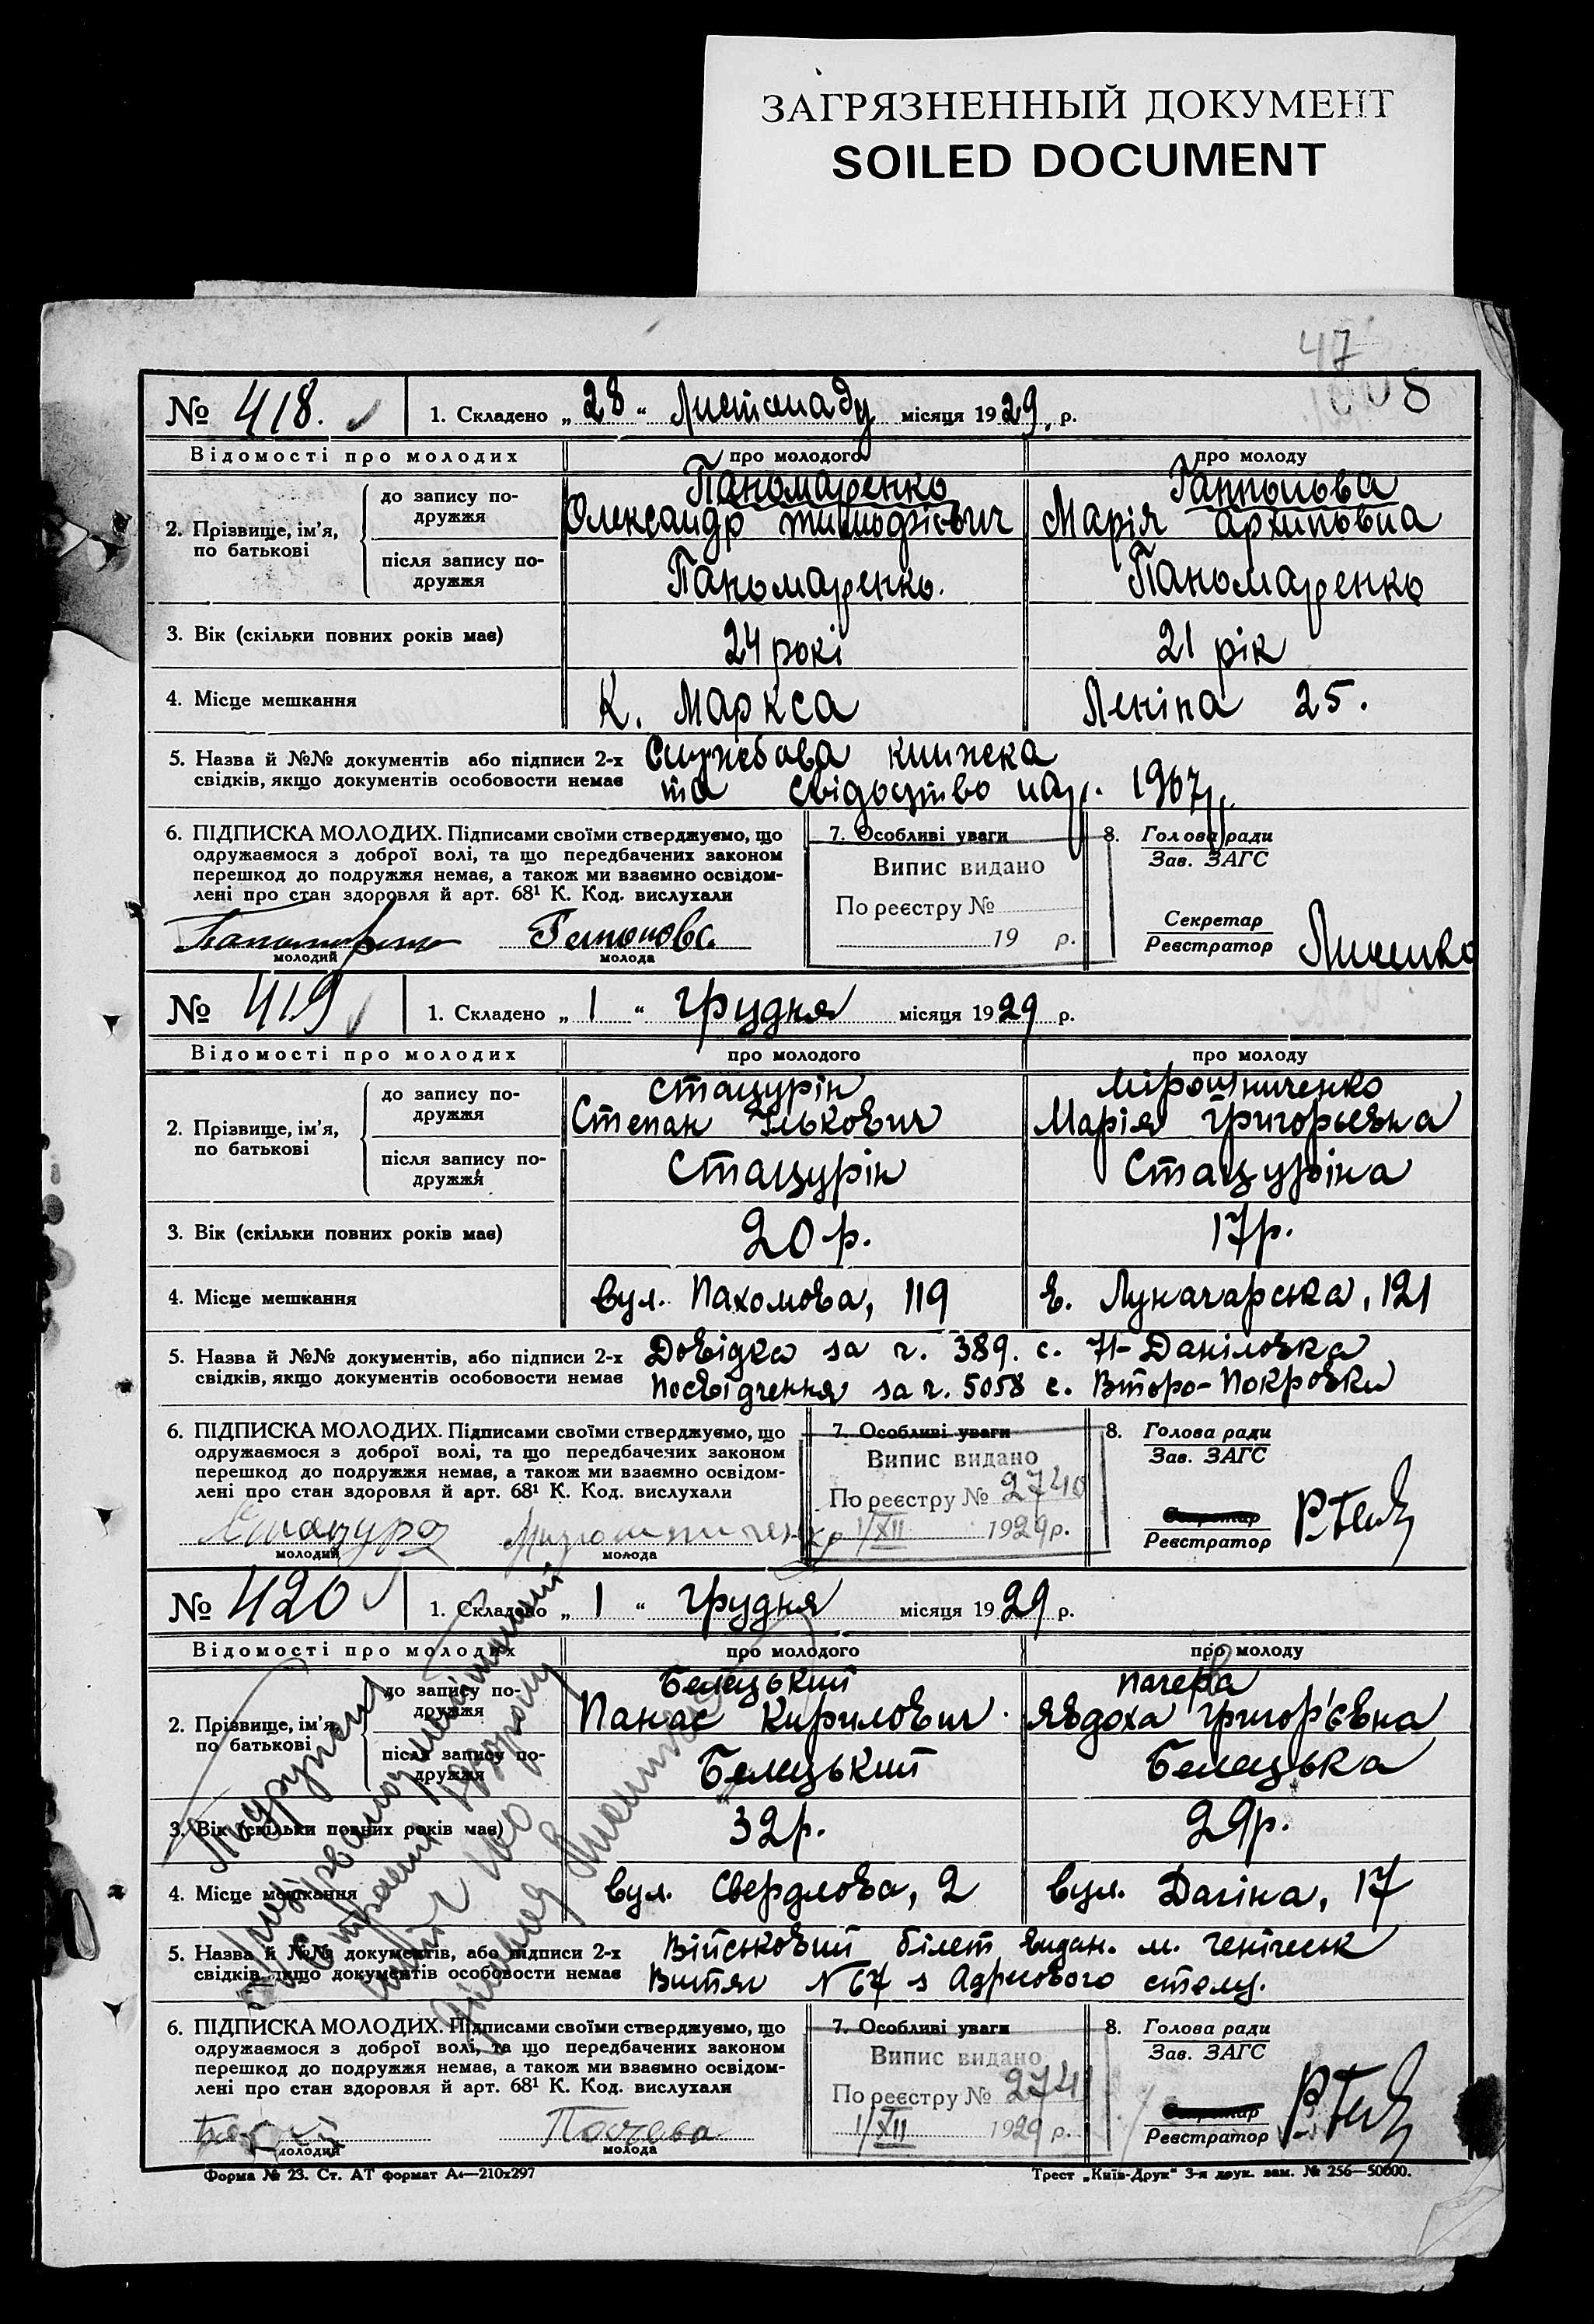 ЗАГРЯЗНЕННЫЙ ДОКУМЕНТ
SOILED DOCUMENT
47
№ 418. 1. Складено „28“ Листопаду місяця 1929 р.
Відомості про молодих про молодого про молоду
2. Прізвище, ім’я, по батькові
до запису подружжя
Паномаренко
Олександр Тимофієвич
Гаппонова
Марія Архиповна
після запису подружжя
Паномаренко.
Паномаренко
3. Вік (скільки повних років має) 24 рокі 21 рік
4. Місце мешкання К. Маркса Леніна 25.
5. Назва й №№ документів або підписи 2-х Службова книжека
свідків, якщо документів особовости немає та свідоцтво нар. 1907р.
6. ПІДПИСКА МОЛОДИХ. Підписами своїми стверджуємо, що
одружаємося з доброї волі, та що передбачених законом
перешкод до подружжя немає, а також ми взаємно освідом-
лені про стан здоровля й арт. 68¹ К. Код. вислухали
молодий молода
7. Особливі уваги
Випис видано
По реєстру №
19 р.
8. Голова ради
Зав. ЗАГС
Секретар
Реєстратор
№ 419 1. Складено „1“ грудня місяця 1929 р.
Відомості про молодих про молодого про молоду
2. Прізвище, ім’я, по батькові
до запису подружжя
Стацурін
Степан Ількович
Мірошниченко
Марія Григорьевна
після запису подружжя
Стацурін
Стацуріна
3. Вік (скільки повних років має) 20 р. 17р.
4. Місце мешкання вул. Пахомова, 119 в. Луначарська, 121
5. Назва й №№ документів, або підписи 2-х Довідка за ч. 389. с. Даніловка
свідків, якщо документів особовости немає Посвідчення за ч. 5058 с. Второ-Покровки
6. ПІДПИСКА МОЛОДИХ. Підписами своїми стверджуємо, що
одружаємося з доброї волі, та що передбачених законом
перешкод до подружжя немає, а також ми взаємно освідом-
лені про стан здоровля й арт. 68¹ К. Код. вислухали
Стацура Мирошниченко
молодий молода
7. Особливі уваги
Випис видано
По реєстру № 2740
1/XII 1929 р.
8. Голова ради
Зав. ЗАГС
Секретар
Реєстратор
№ 420 1. Складено „1“ грудня місяця 1929 р.
Відомості про молодих про молодого про молоду
2. Прізвище, ім’я, по батькові
до запису подружжя
Белецький
Панас Кирилович
Пачева
Явдоха Григор'євна
після запису подружжя
Белецький
Белецька
3. Вік (скільки повних років має) 32р. 29р.
4. Місце мешкання вул. Свердлова, 2 вул. Дагіна, 17
5. Назва й №№ документів, або підписи 2-х Військовий білет видан. м. Генічеськ
свідків, якщо документів особовости немає Витяг N 67 з Адресового столу.
6. ПІДПИСКА МОЛОДИХ. Підписами своїми стверджуємо, що
одружаємося з доброї волі, та що передбачених законом
перешкод до подружжя немає, а також ми взаємно освідом-
лені про стан здоровля й арт. 68¹ К. Код. вислухали
молодий молода
7. Особливі уваги
Випис видано
По реєстру № 2741
1/XII 1929 р.
8. Голова ради
Зав. ЗАГС
Секретар
Реєстратор
Форма № 23. Ст. АТ формат А₄—210х297
Трест „Київ-Друк“ 3-я друк. зам. № 256—50000.